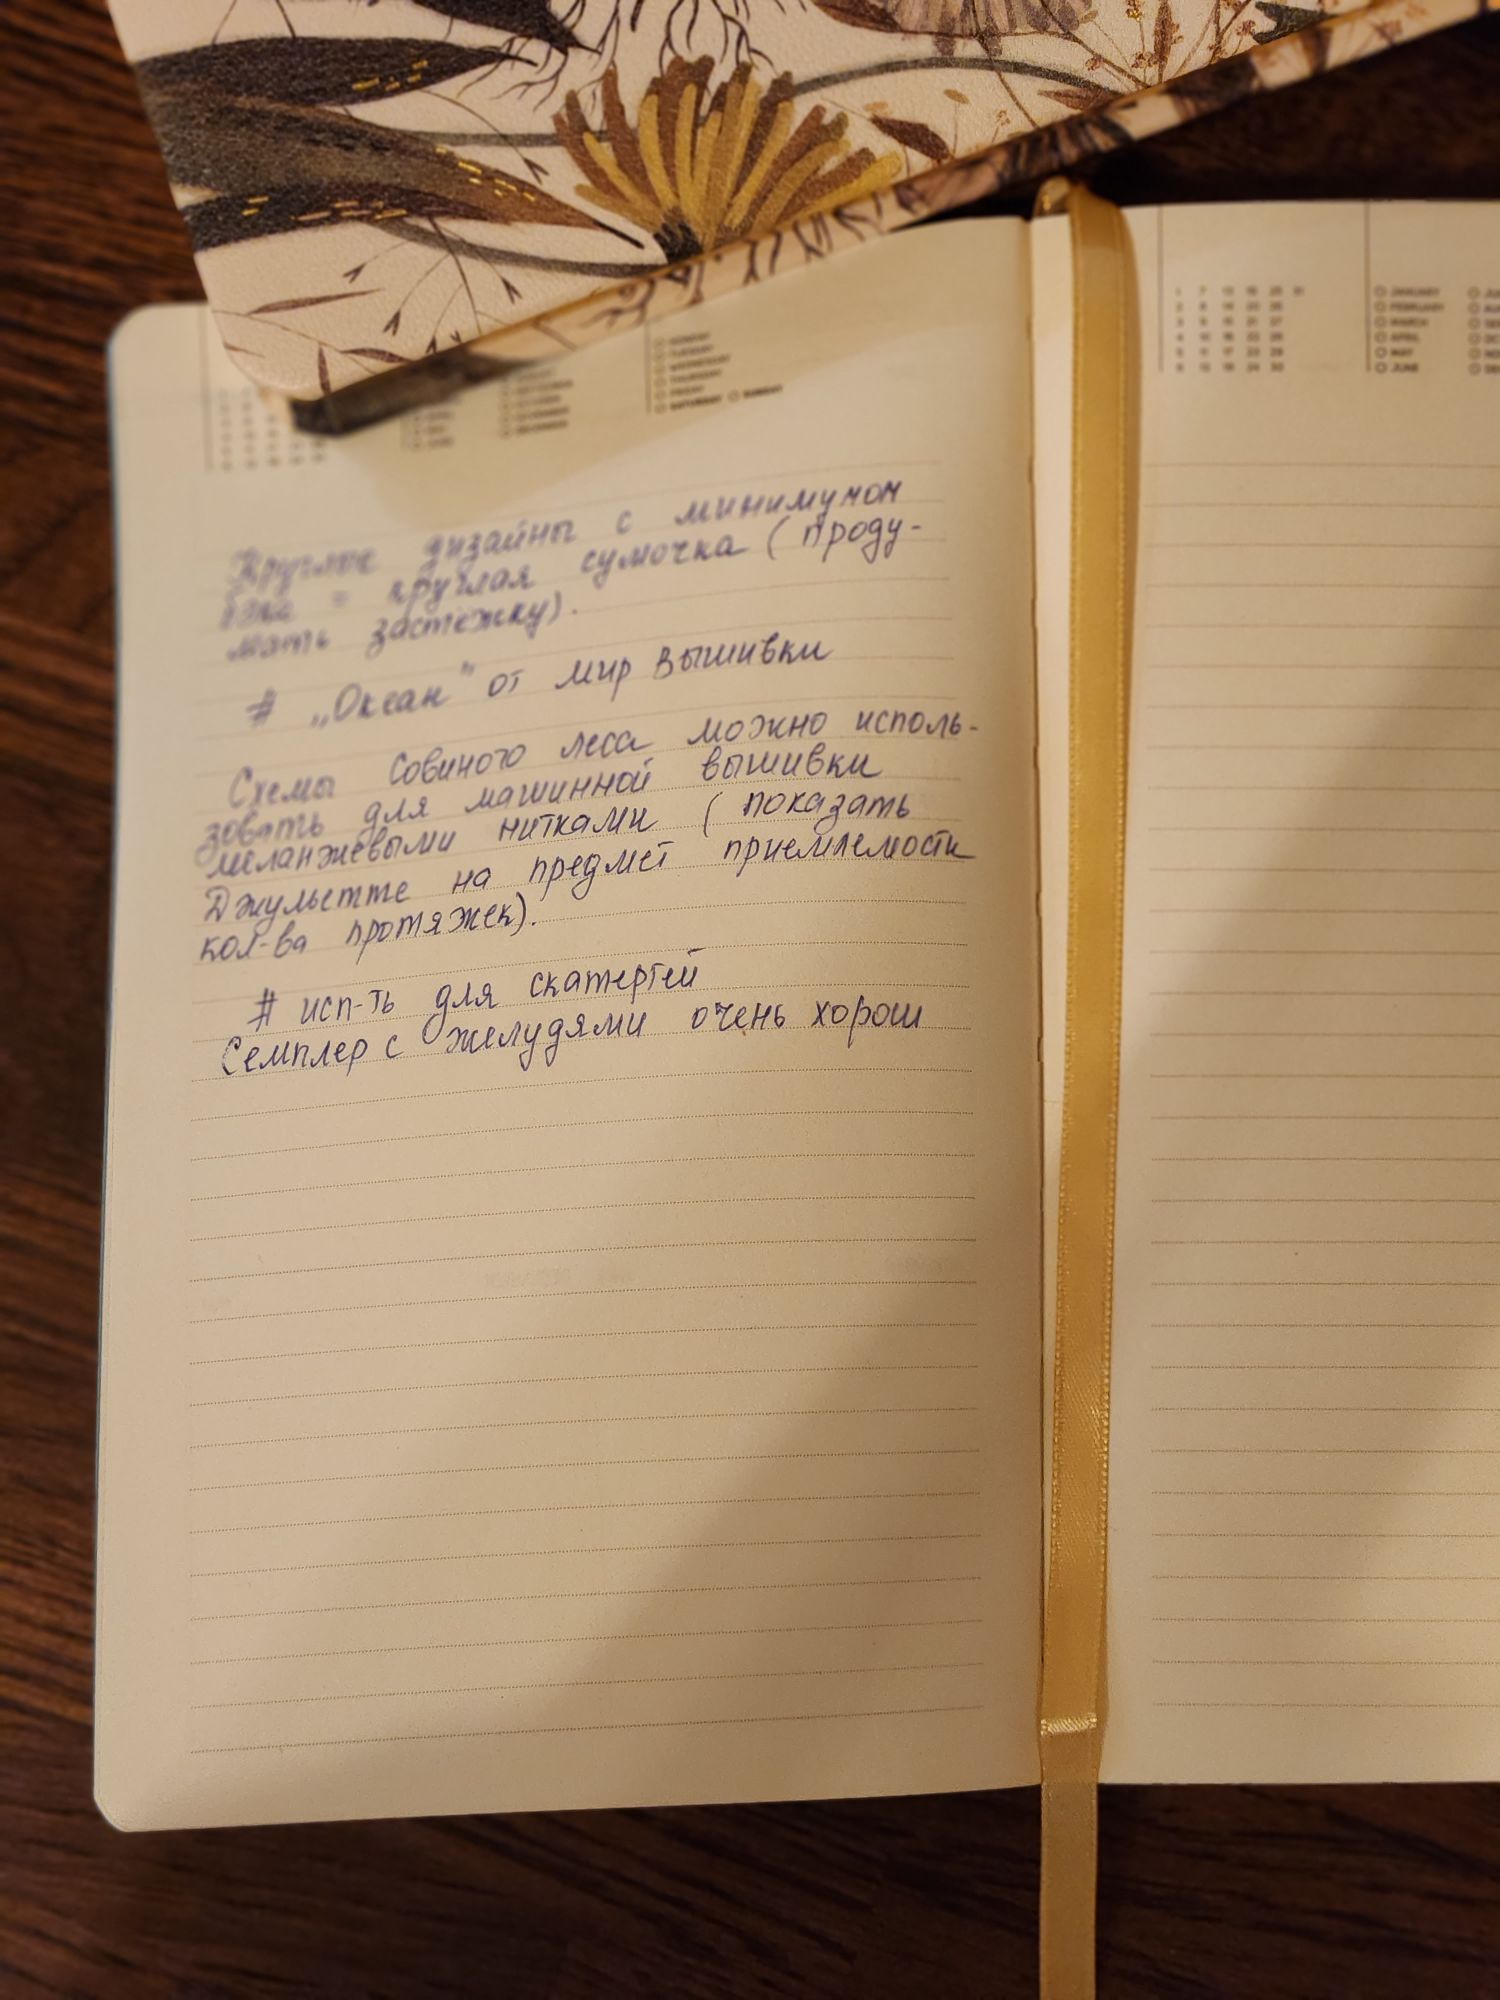 Круглые дизайны с минимумом
бэка = круглая сумочка (проду-
мать застежку).
# „Океан" от мир вышивки
Схемы Совиного леса можно исполь-
зовать для машинной вышивки
меланжевыми нитками (показать
Джульетте на предмет приемлемости
кол-ва протяжек).
# исп-ть для скатертей
Семплер с желудями очень хорош
1 7 13 19 25 31
2 8 14 20 26
3 9 15 21 27
4 10 16 22 28
5 11 17 23 29
6 12 18 24 30
JANUARY
FEBRUARY
MARCH
APRIL
MAY
JUNE
TUESDAY
WEDNESDAY
THURSDAY
FRIDAY
SATURDAY SUNDAY